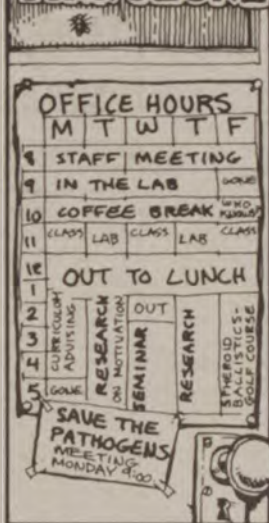 OFFICE HOURS
M T W T F
8 STAFF MEETING
9 IN THE LAB GONE
10 COFFEE BREAK WHO KNOWS?
11 CLASS LAB CLASS LAB CLASS
12
1 OUT TO LUNCH
2 CURRICULUM ADVISING RESEARCH ON MOTIVATION OUT RESEARCH SPHEROID BALLISTICS- GOLF COURSE
3 SEMINAR
4
5 GONE
SAVE THE
PATHOGENS
MEETING
MONDAY 9:00